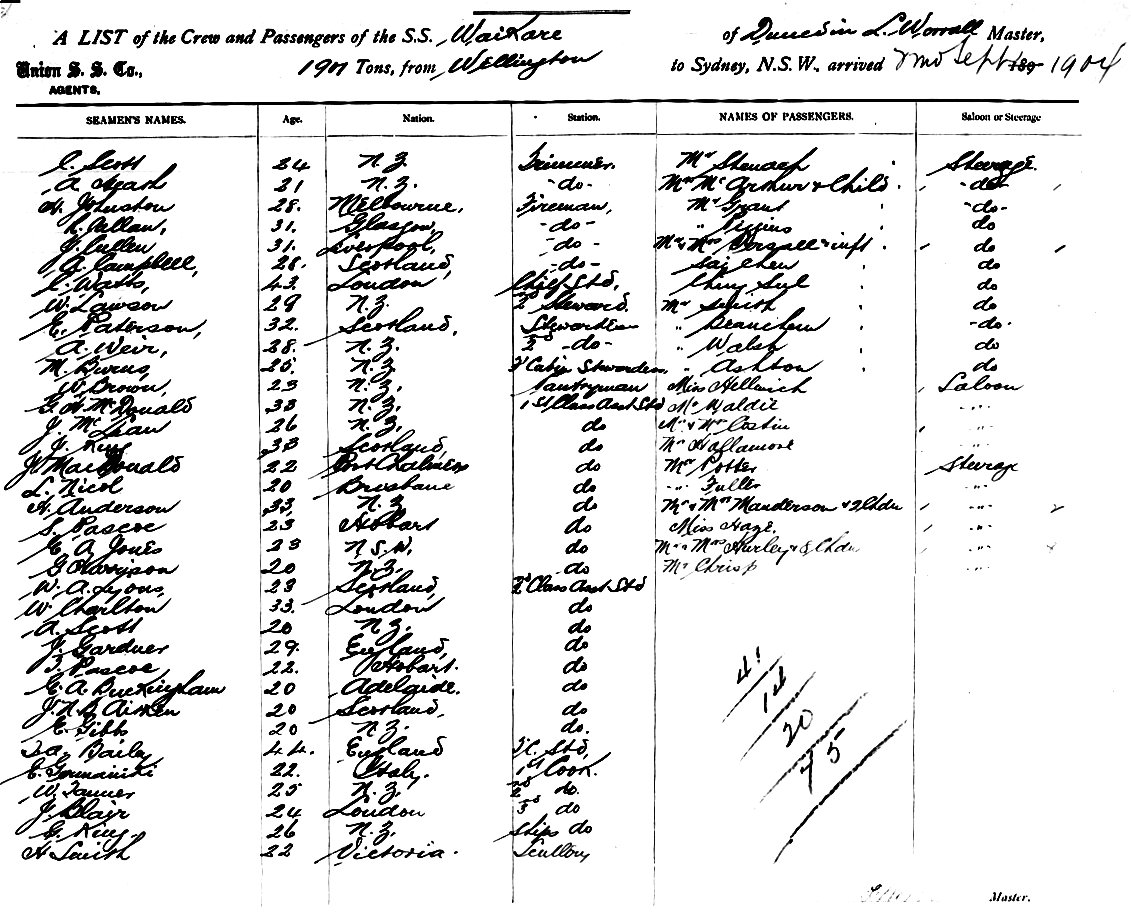 A LIST of the Crew and Passengers of the S.S. Waikare of Dunedin L. Worrall Master,
Union S. S. Co., 1901 Tons, from Wellington to Sydney, N.S.W., arrived Sept 189 1904
AGENTS.
SEAMEN'S NAMES. Age. Nation. Station. NAMES OF PASSENGERS. Saloon or Steerage
C. Scott 24 N.Z. Trimmer. Mr
A. 21 N.Z. -do- Mrs McArthur & Child. -do-
H. Johnston 28. Melbourne, Fireman, Mr Grant -do-
Allan, 31. Glasgow, -do- " do
J. Cullen 31. Liverpool, -do- Mr & Mrs & inft do
Campbell, 28. Scotland, -do- do
C. Watts, 43. London Chief Std, do
W. Lawson 29 N.Z. 2d Steward. Mr Smith do
E. Paterson, 32. Scotland, Stewardess " -do-
A. Weir, 28. N.Z. 2d -do- " Walsh do
M. Burns, 25. N.Z. 2d Cabin Stewardess, " Ashton do
W. Brown, 23 N.Z. Pantryman Miss Saloon
G. H. McDonald 33 N.Z. 1st Class Asst Std Mr Waldie - " -
J. McLean 26 N.Z. do Mr & Mrs Costin - " -
J. King 33 Scotland, do Mr - " -
J. MacDonald 22 Port Chalmers do Mr Potter Steerage
L. Nicol 20 Brisbane do - " - Fuller - " -
H. Anderson 33, N.Z do Mr & Mrs Manderson & 2 Chdn - " -
S. Pascoe 23 Hobart do Miss - " -
E. A. Jones 23 N.S.W. do Mr & Mrs Hurley & Chdn - " -
G. Harrison 20 N.Z. do Mr Chrisp - " -
W. A. Lyons, 23 Scotland, 2d Class Asst Std
W. Charlton 33. London do
A. Scott 20 N.Z. do
J. Gardner 29. England, do
Pascoe, 22. Hobart. do
E. A. Buckingham 20 Adelaide. do
Aitken 20 Scotland, do
E. Gibbs 20 N.Z. do.
Baily 44. England Std,
E. 22. Italy. 1st Cook.
W. Tanner 25 N.Z. 2nd do.
J. Blair 24 London 3d do
G. King. 26 N.Z. Ships do
H Smith 22 Victoria. Scullery
41
14
20
75
Master.